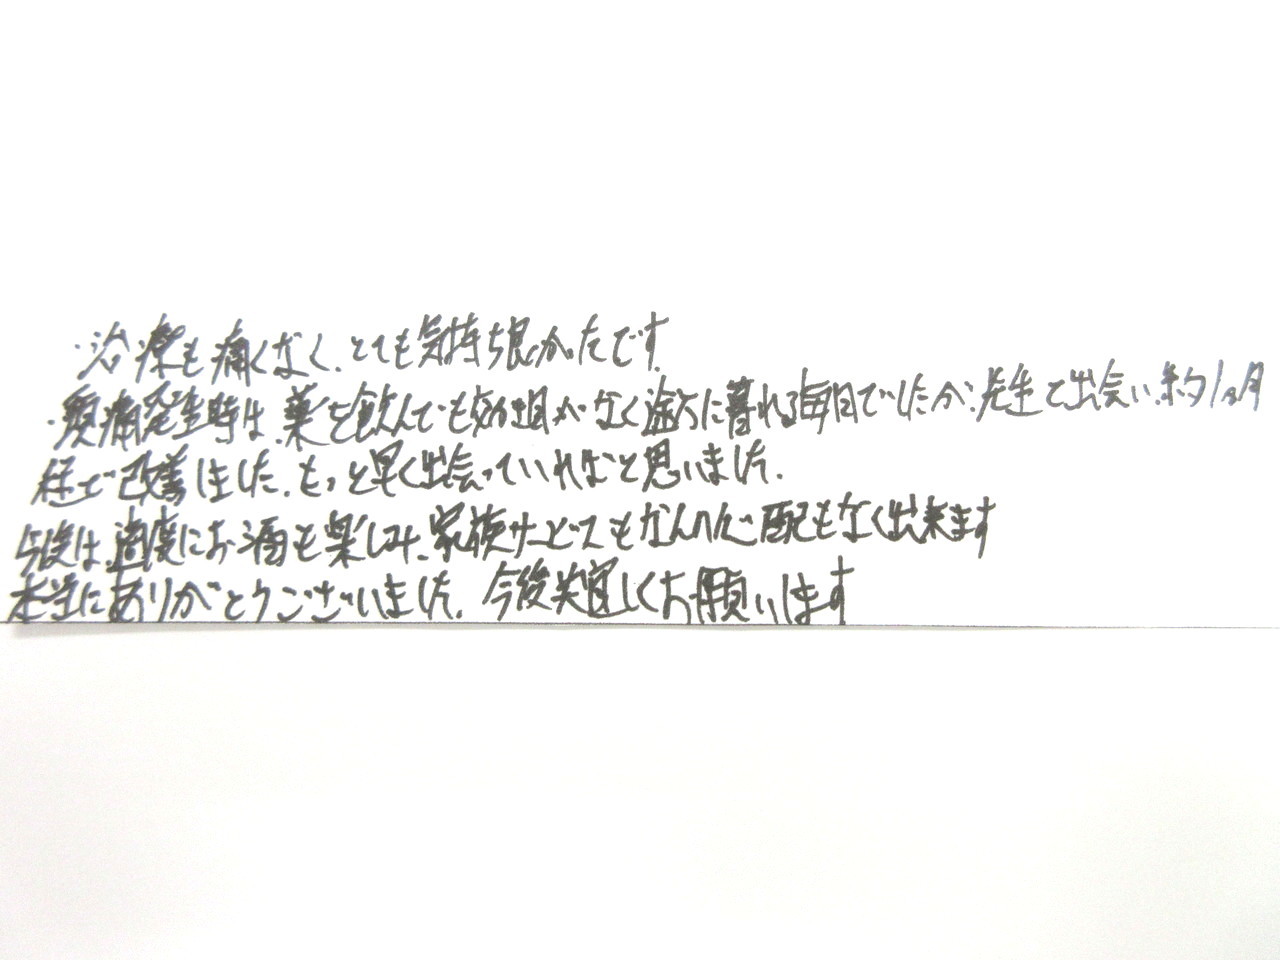 ・治療も痛くなく、とても気持ち良かったです。
・頭痛発生時は、薬を飲んでも効き目がなく途方に暮れる毎日でしたが、先生と出会い、約1ヶ月
程で改善しました。もっと早く出会っていればなと思いました。
今後は、適度にお酒も楽しみ、家族サービスもなんの心配もなく出来ます
本当にありがとうございました。今後共宜しくお願いします